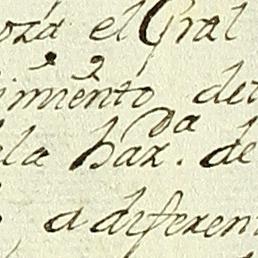 oza el Gral
imiento det
la haz.da de
a diferen